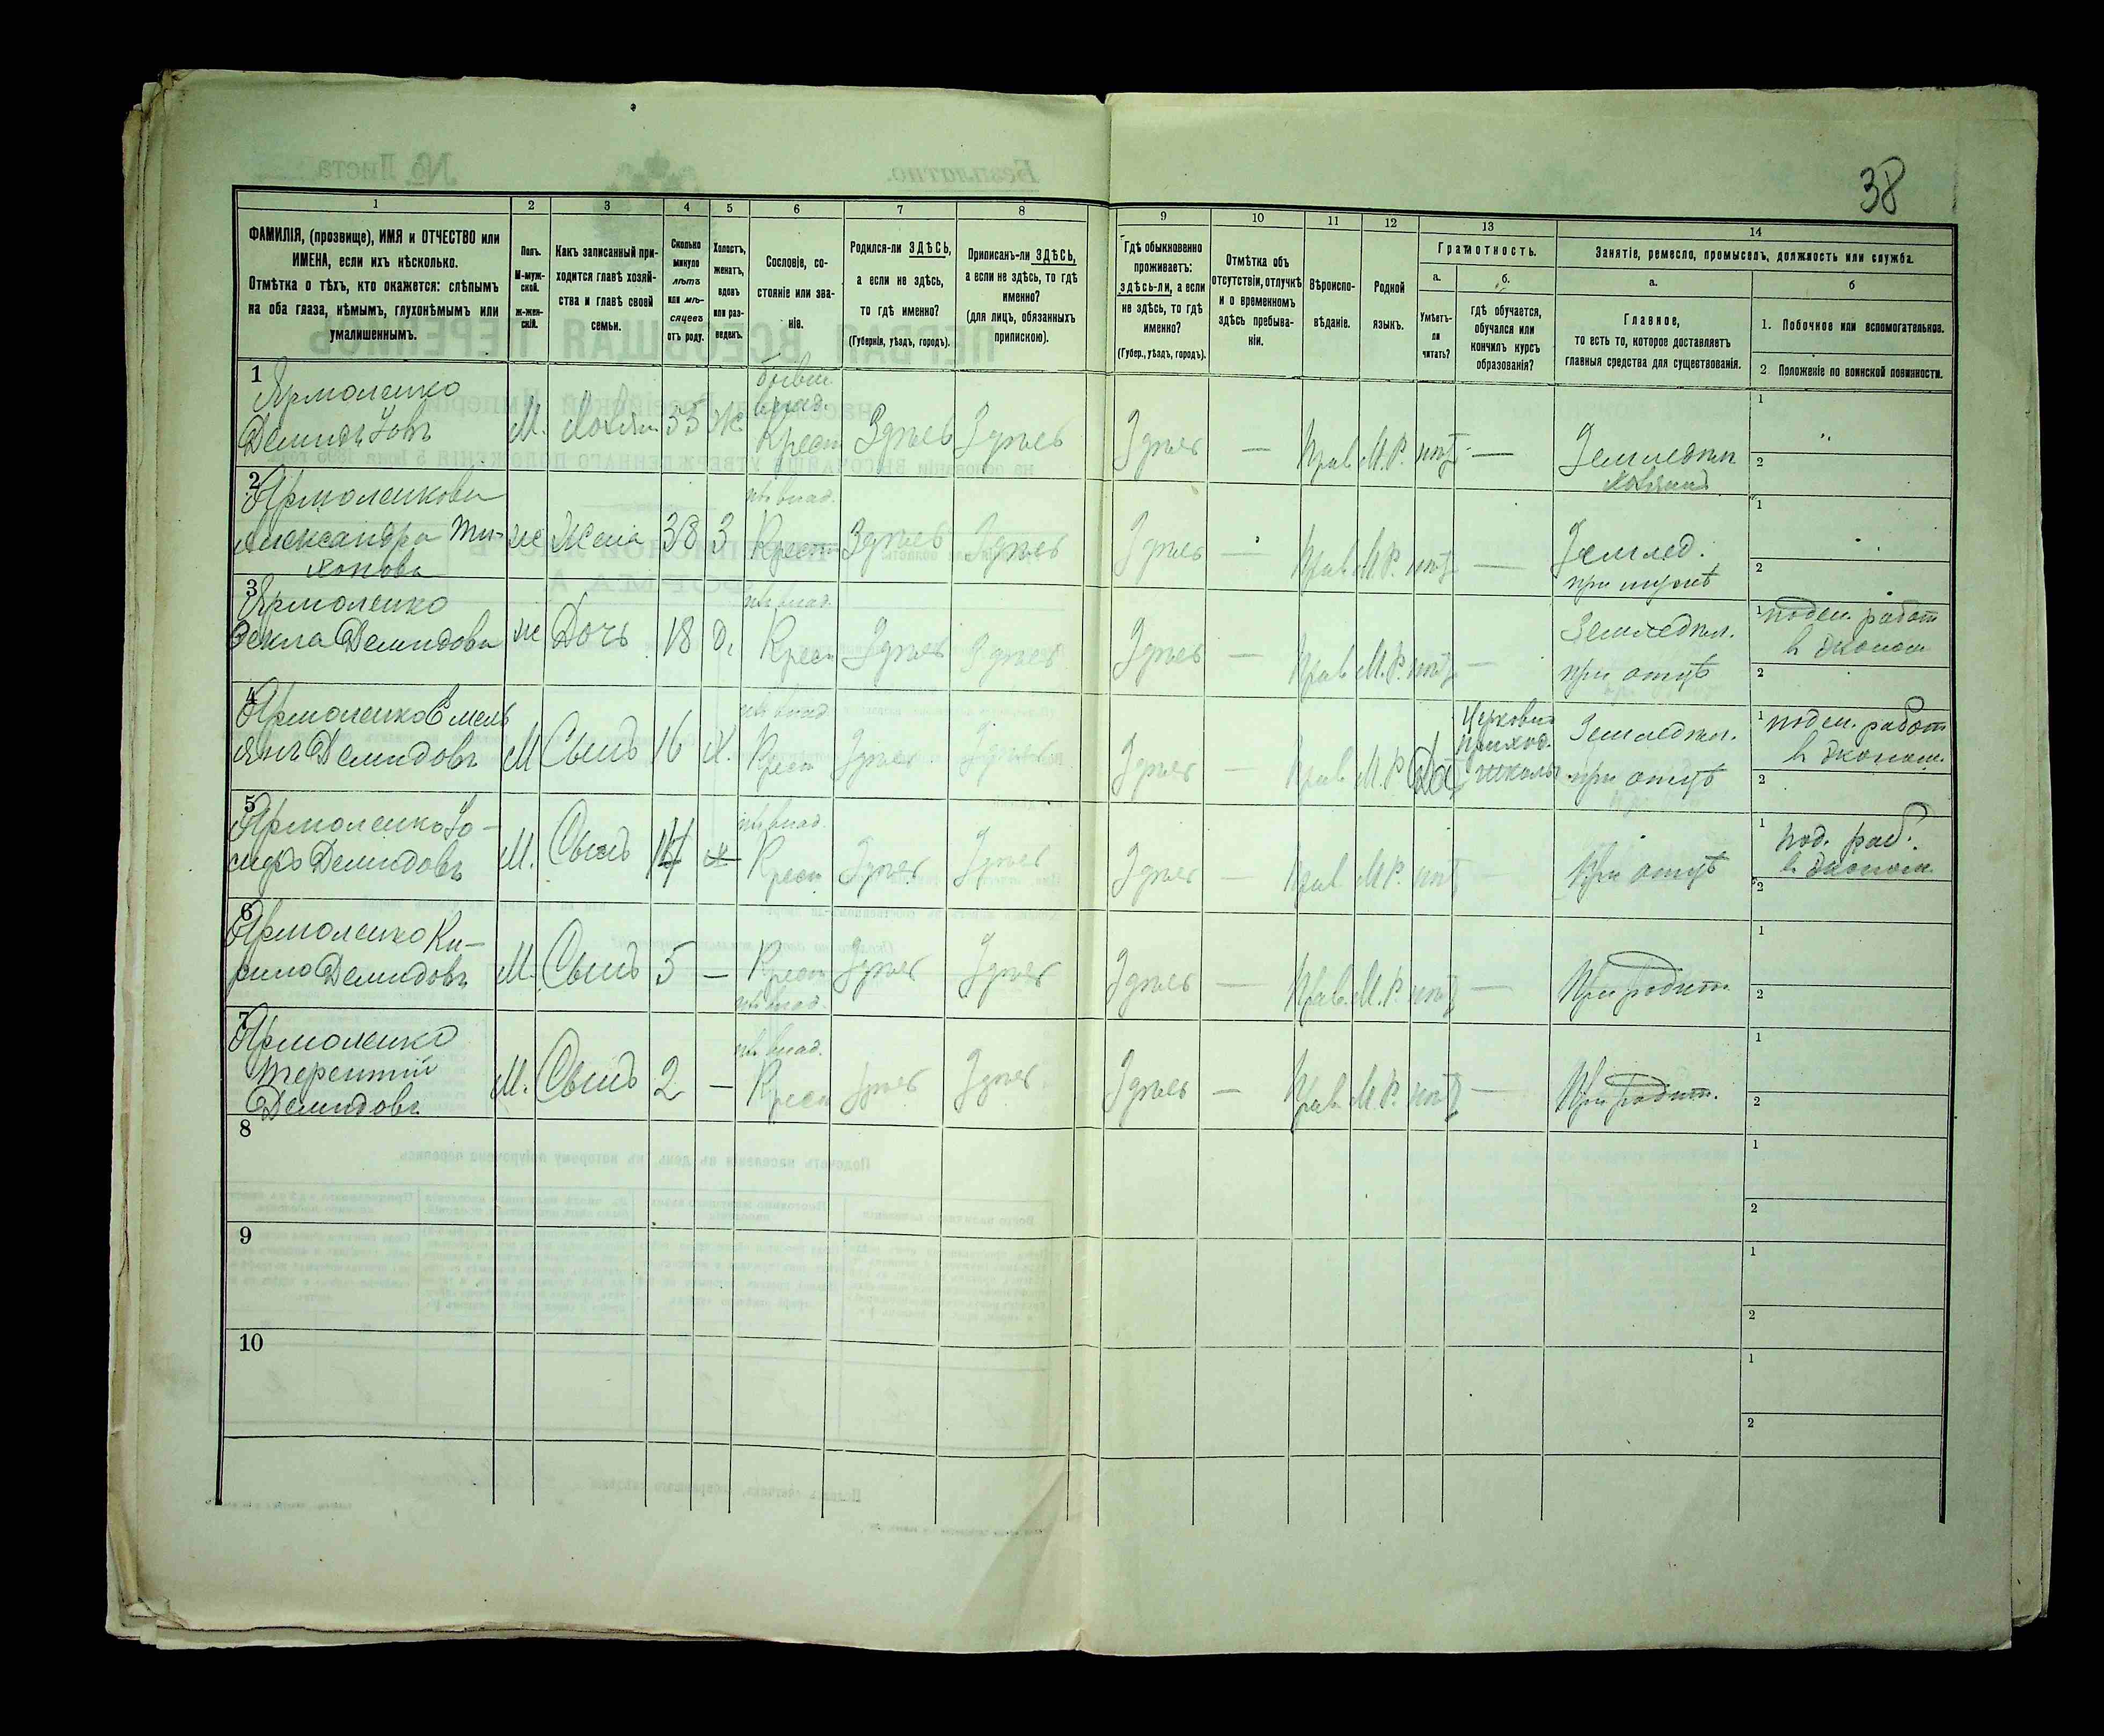 38
1 2 3 4 5 6 7 8 9 10 11 12 13 14
ФАМИЛІЯ, (прозвище), ИМЯ и ОТЧЕСТВО или
ИМЕНА, если ихъ нѣсколько.
Отмѣтка о тѣхъ, кто окажется: слѣпымъ
на оба глаза, нѣмымъ, глухонѣмымъ или
умалишеннымъ.
Полъ.
М-муж-
ской.
ж-жен-
скій.
Какъ записанный при-
ходится главѣ хозяй-
ства и главѣ своей
семьи.
Сколько
минуло
лѣтъ
или мѣ-
сяцевъ
отъ роду.
Холостъ,
женатъ,
вдовъ
или раз-
веденъ.
Сословіе, со-
стояніе или зва-
ніе.
Родился-ли ЗДѢСЬ,
а если не здѣсь,
то гдѣ именно?
(Губернія, уѣздъ, городъ).
Приписанъ-ли ЗДѢСЬ,
а если не здѣсь, то гдѣ
именно?
(для лицъ, обязанныхъ
припискою).
Гдѣ обыкновенно
проживаетъ:
здѣсь-ли, а если
не здѣсь, то гдѣ
именно?
(Губер., уѣздъ, городъ).
Отмѣтка объ
отсутствіи, отлучкѣ
и о временномъ
здѣсь пребыва-
ніи.
Вѣроиспо-
вѣданіе.
Родной
языкъ.
Грамотность.
а.
Умѣетъ-
ли
читать?
б.
гдѣ обучается,
обучался или
кончилъ курсъ
образованія?
Занятіе, ремесло, промыселъ, должность или служба.
а.
Главное,
то есть то, которое доставляетъ
главныя средства для существованія.
б
1. Побочное или вспомогательное.
2 Положеніе по воинской повинности.
1
Ярмоленко
Демидъ Іовъ
М. Хозяин Ж
бывш.
влад.
Крест Здѣсь Здѣсь
Здѣсь — Прав. М.Р. нѣт —
Земледѣл
Хозяинъ
1
2
2
Ярмоленкова
Александра Ти-
хонова
ж Жена 38 З
влад.
Крест Здѣсь Здѣсь
Здѣсь — Прав. М.Р. нѣт —
Землед.
при мужѣ
1
2
3
Ярмоленко
Текла Демидова
ж Дочь 18 д.
влад.
Крест Здѣсь Здѣсь
Здѣсь — Прав М.Р. нѣт —
Земледѣл.
при отцѣ
1 поден. работ
в эконом
2
4
Ярмоленко Емель
янъ Демидовъ
М Сынъ 16 Х.
влад.
Крест Здѣсь Здѣсь
Здѣсь — Прав М.Р. Да
Церковн
приход.
школы
Земледѣл.
при отцѣ
1 поден. работ
в эконом.
2
5
Ярмоленко Іо-
сифъ Демидовъ
М. Сынъ
влад.
Крест Здѣсь Здѣсь
Здѣсь — Прав М.Р. нѣт —
При отцѣ
1 под. раб.
в эконом.
2
6
Ярмоленко Ки-
рило Демидовъ
М. Сынъ 5 — Крест Здѣсь Здѣсь
влад.
Здѣсь — Прав. М.Р. нѣт —
При родит.
1
2
7
Ярмоленко
Терентій
Демидовъ
М. Сынъ 2 —
влад.
Крест Здѣсь Здѣсь
Здѣсь — Прав. М.Р. нѣт —
При родит.
1
2
8
1
2
9
1
2
10
1
2